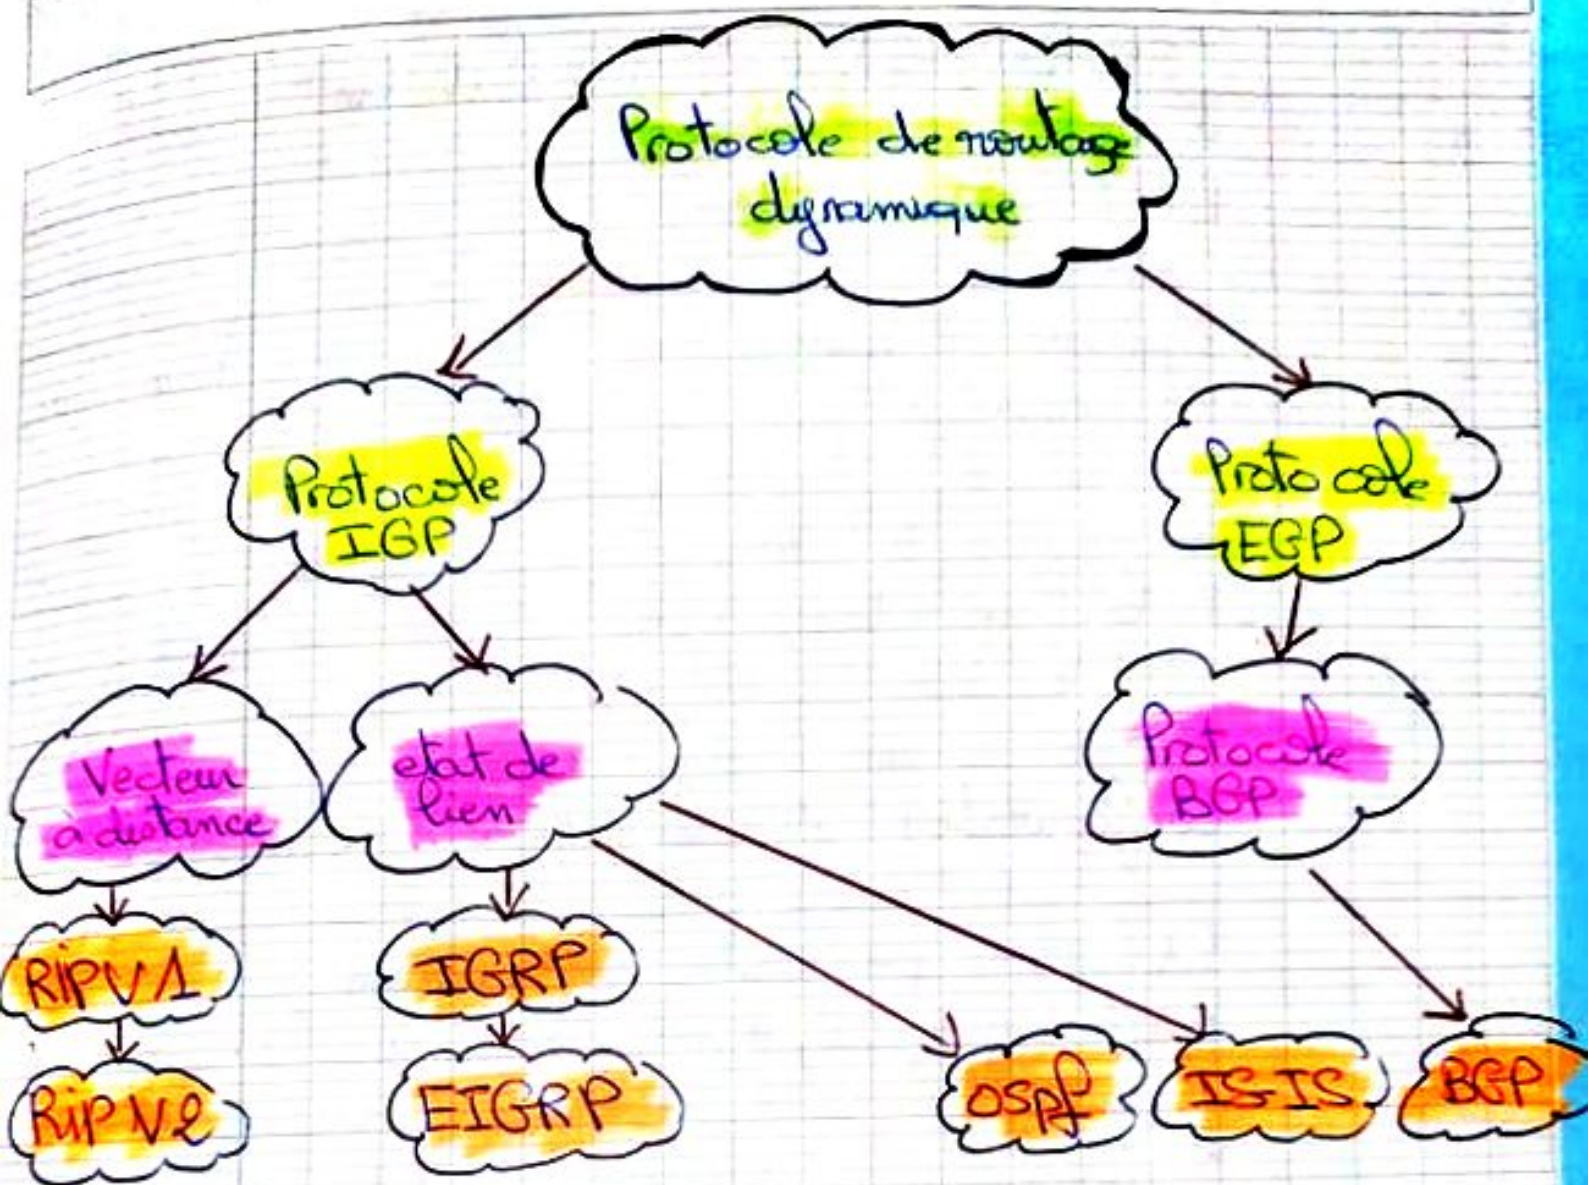 Protocole de routage
dynamique
Protocole
IGP
Protocole
EGP
Vecteur
à distance
etat de
lien
Protocole
BGP
RIPV1
IGRP
RipV2
EIGRP
ospf
IS-IS
BGP